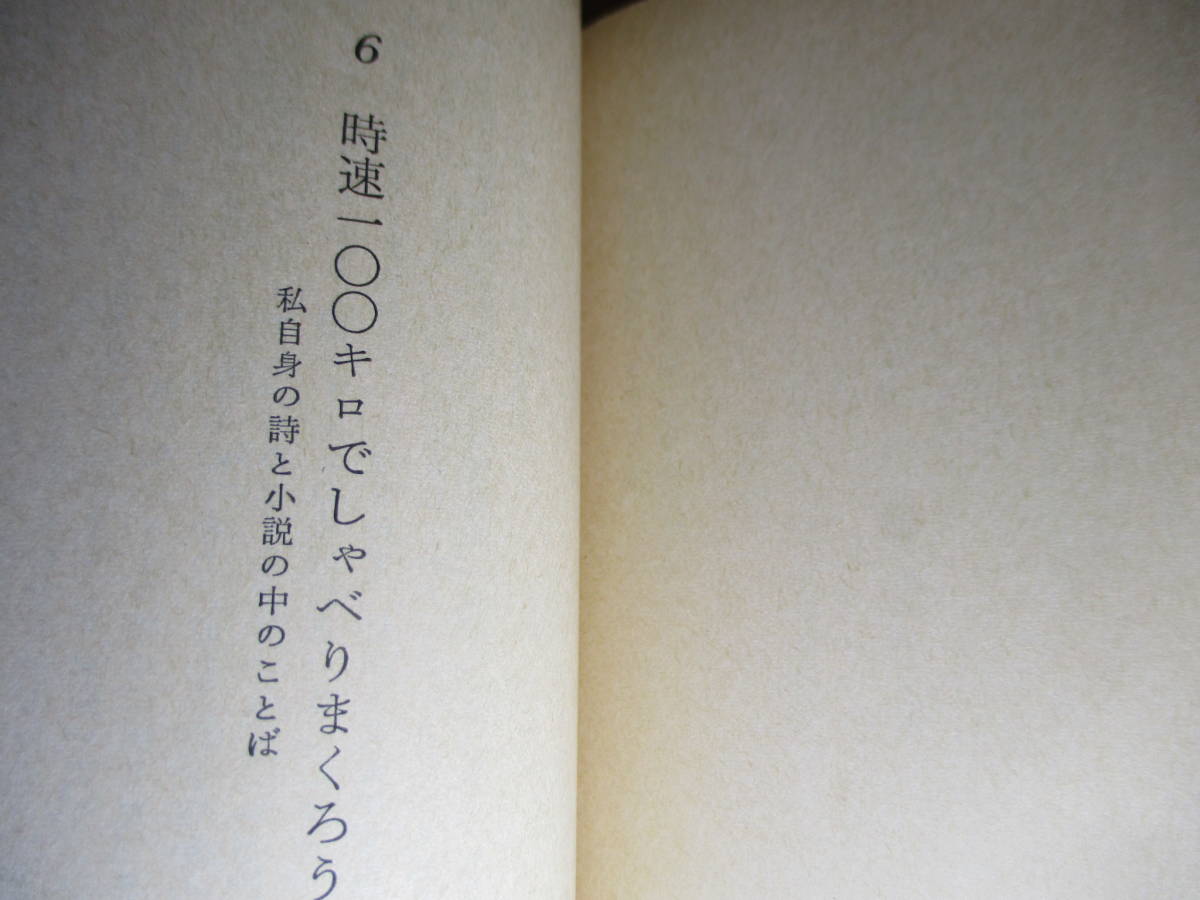 6 時速一〇〇キロでしゃべりまくろう
私自身の詩と小説の中のことば